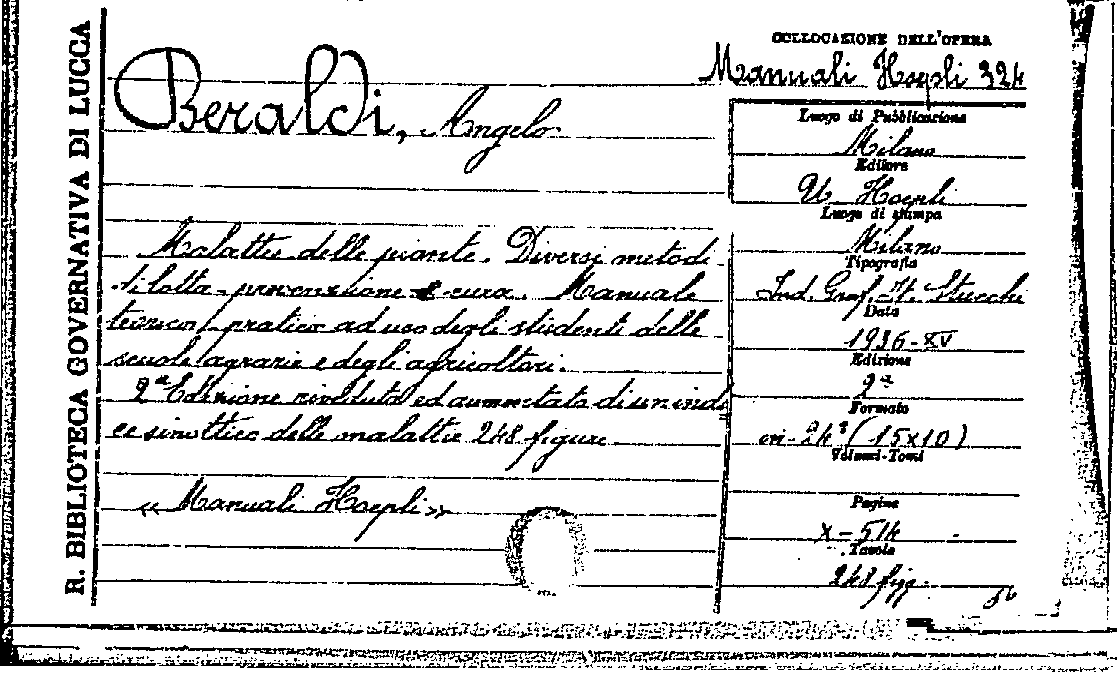 R. BIBLIOTECA GOVERNATIVA DI LUCCA
Beraldi, Angelo
Malattie delle piante. Diversi metodi
di lotta - prevenzione e cura. Manuale
teorico pratico ad uso degli studenti delle
scuole agrarie e degli agricoltori.
2ª Edizione riveduta ed aumentata di un indi
ce sinottico delle malattie 248 figure
« Manuali Hoepli »
COLLOCAZIONE DELL'OPERA
Manuali Hoepli 324
Luogo di Pubblicazione
Milano
Editore
U. Hoepli
Luogo di stampa
Milano
Tipografia
Ind. Graf. Stucchi
Data
1936-XV
Edizione
2ª
Formato
in-24° (15x10)
Volumi-Tomi
Pagine
X-514
Tavole
248 figg.